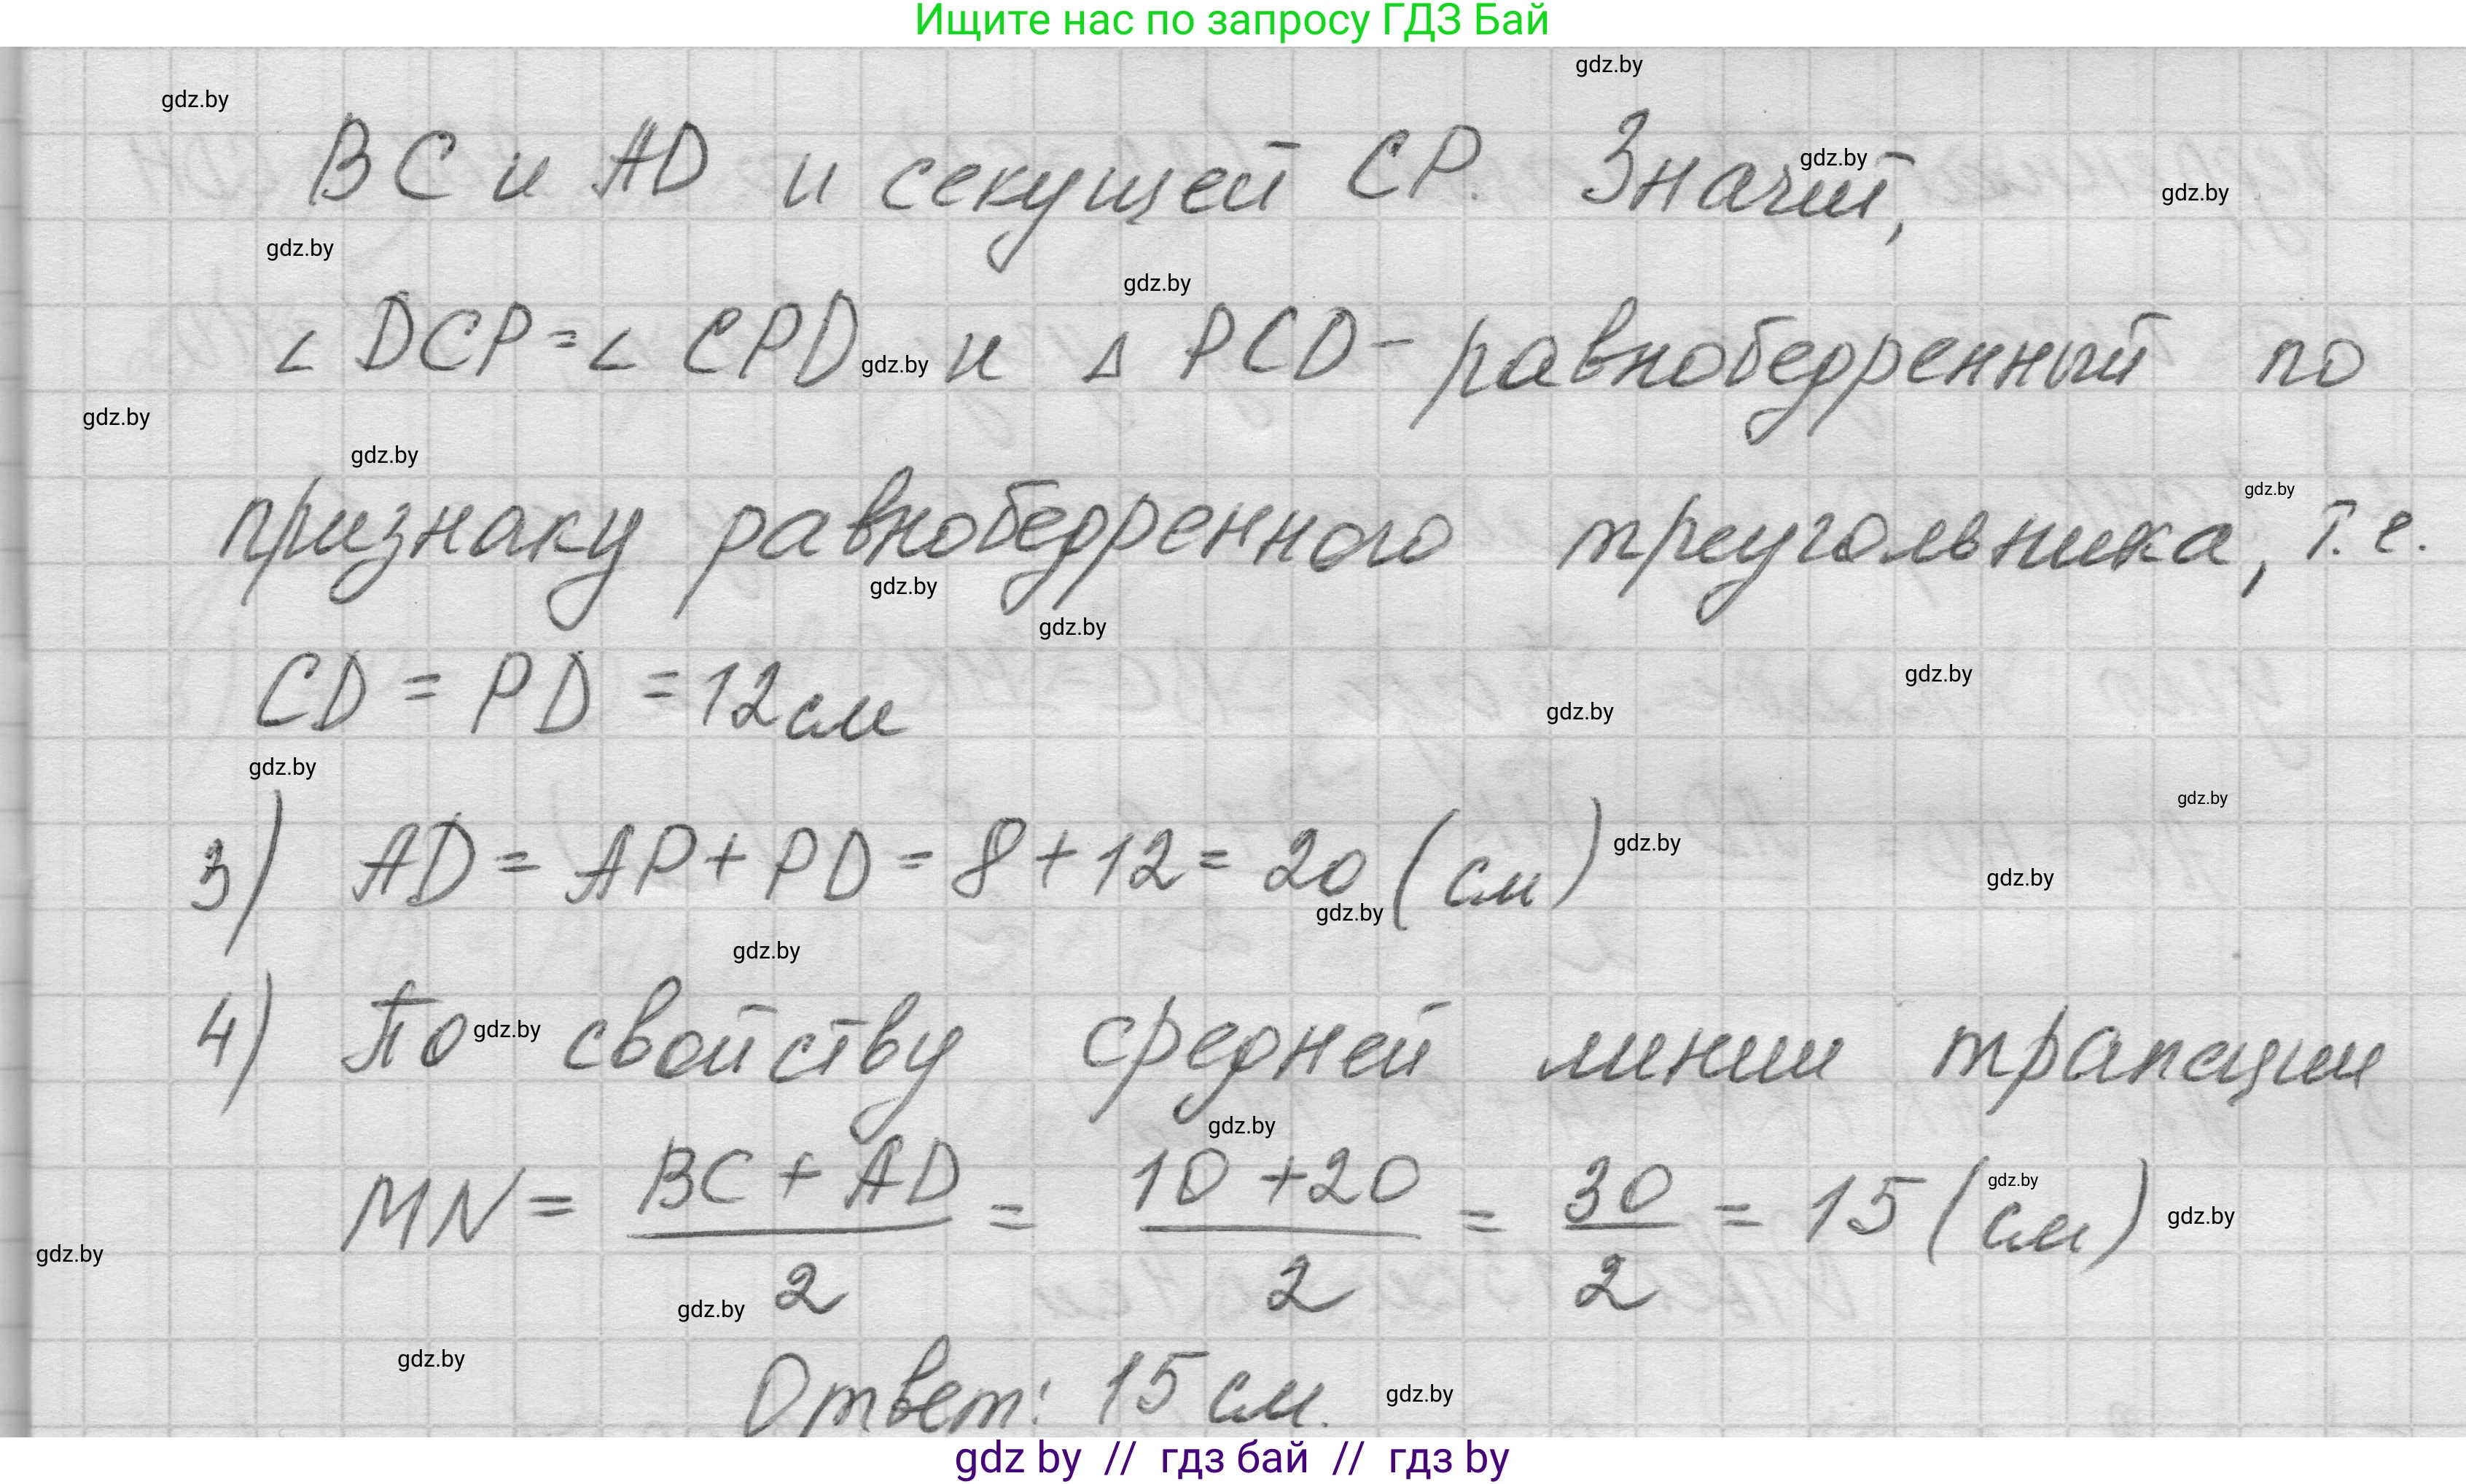 Ищите нас по запросу ГДЗ Бай
gdz.by
gdz.by
BC и AD и секущей CP. Значит,
gdz.by
gdz.by
gdz.by
gdz.by
∠ DCP = ∠ CPD и △ PCD - равнобедренный по
gdz.by
gdz.by
gdz.by
gdz.by
признаку равнобедренного треугольника, т.е.
gdz.by
gdz.by
gdz.by
CD = PD = 12 см
gdz.by
gdz.by
gdz.by
3) AD = AP + PD = 8 + 12 = 20 (см)
gdz.by
gdz.by
gdz.by
gdz.by
4) По свойству средней линии трапеции
gdz.by
gdz.by
MN = BC + AD / 2 = 10 + 20 / 2 = 30 / 2 = 15 (см)
gdz.by
gdz.by
gdz.by
gdz.by
gdz.by
Ответ: 15 см.
gdz.by
gdz by // гдз бай // гдз by